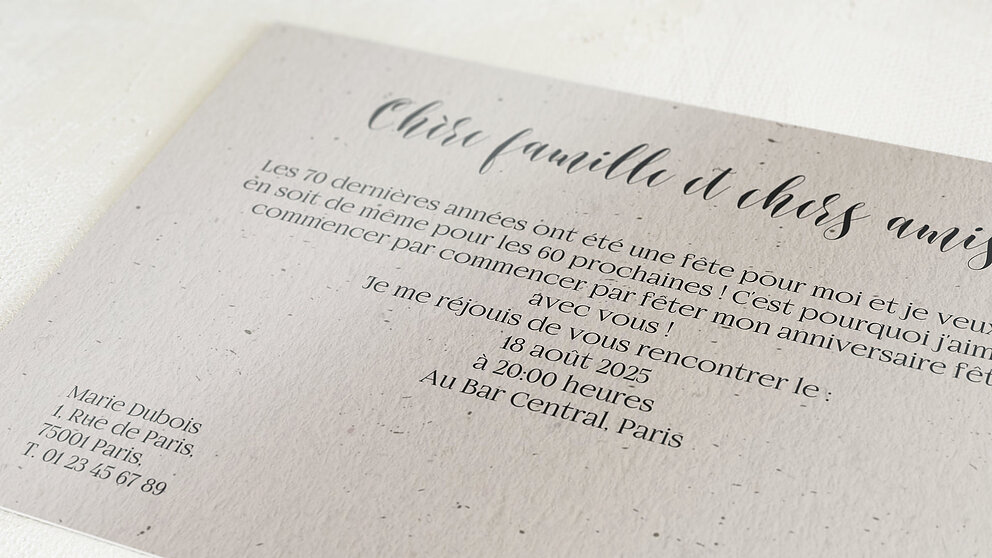 Chère famille et chers amis
Les 70 dernières années ont été une fête pour moi et je veux
en soit de même pour les 60 prochaines ! C'est pourquoi j'aim
commencer par commencer par fêter mon anniversaire fêt
avec vous !
Je me réjouis de vous rencontrer le :
18 août 2025
à 20:00 heures
Au Bar Central, Paris
Marie Dubois
1, Rue de Paris,
75001 Paris,
T. 01 23 45 67 89